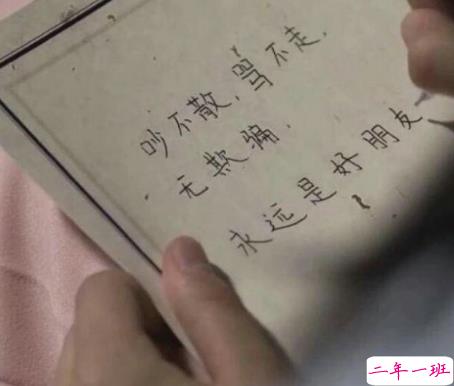 吵不散，骂不走，
无欺骗，
永远是好朋友
二年一班